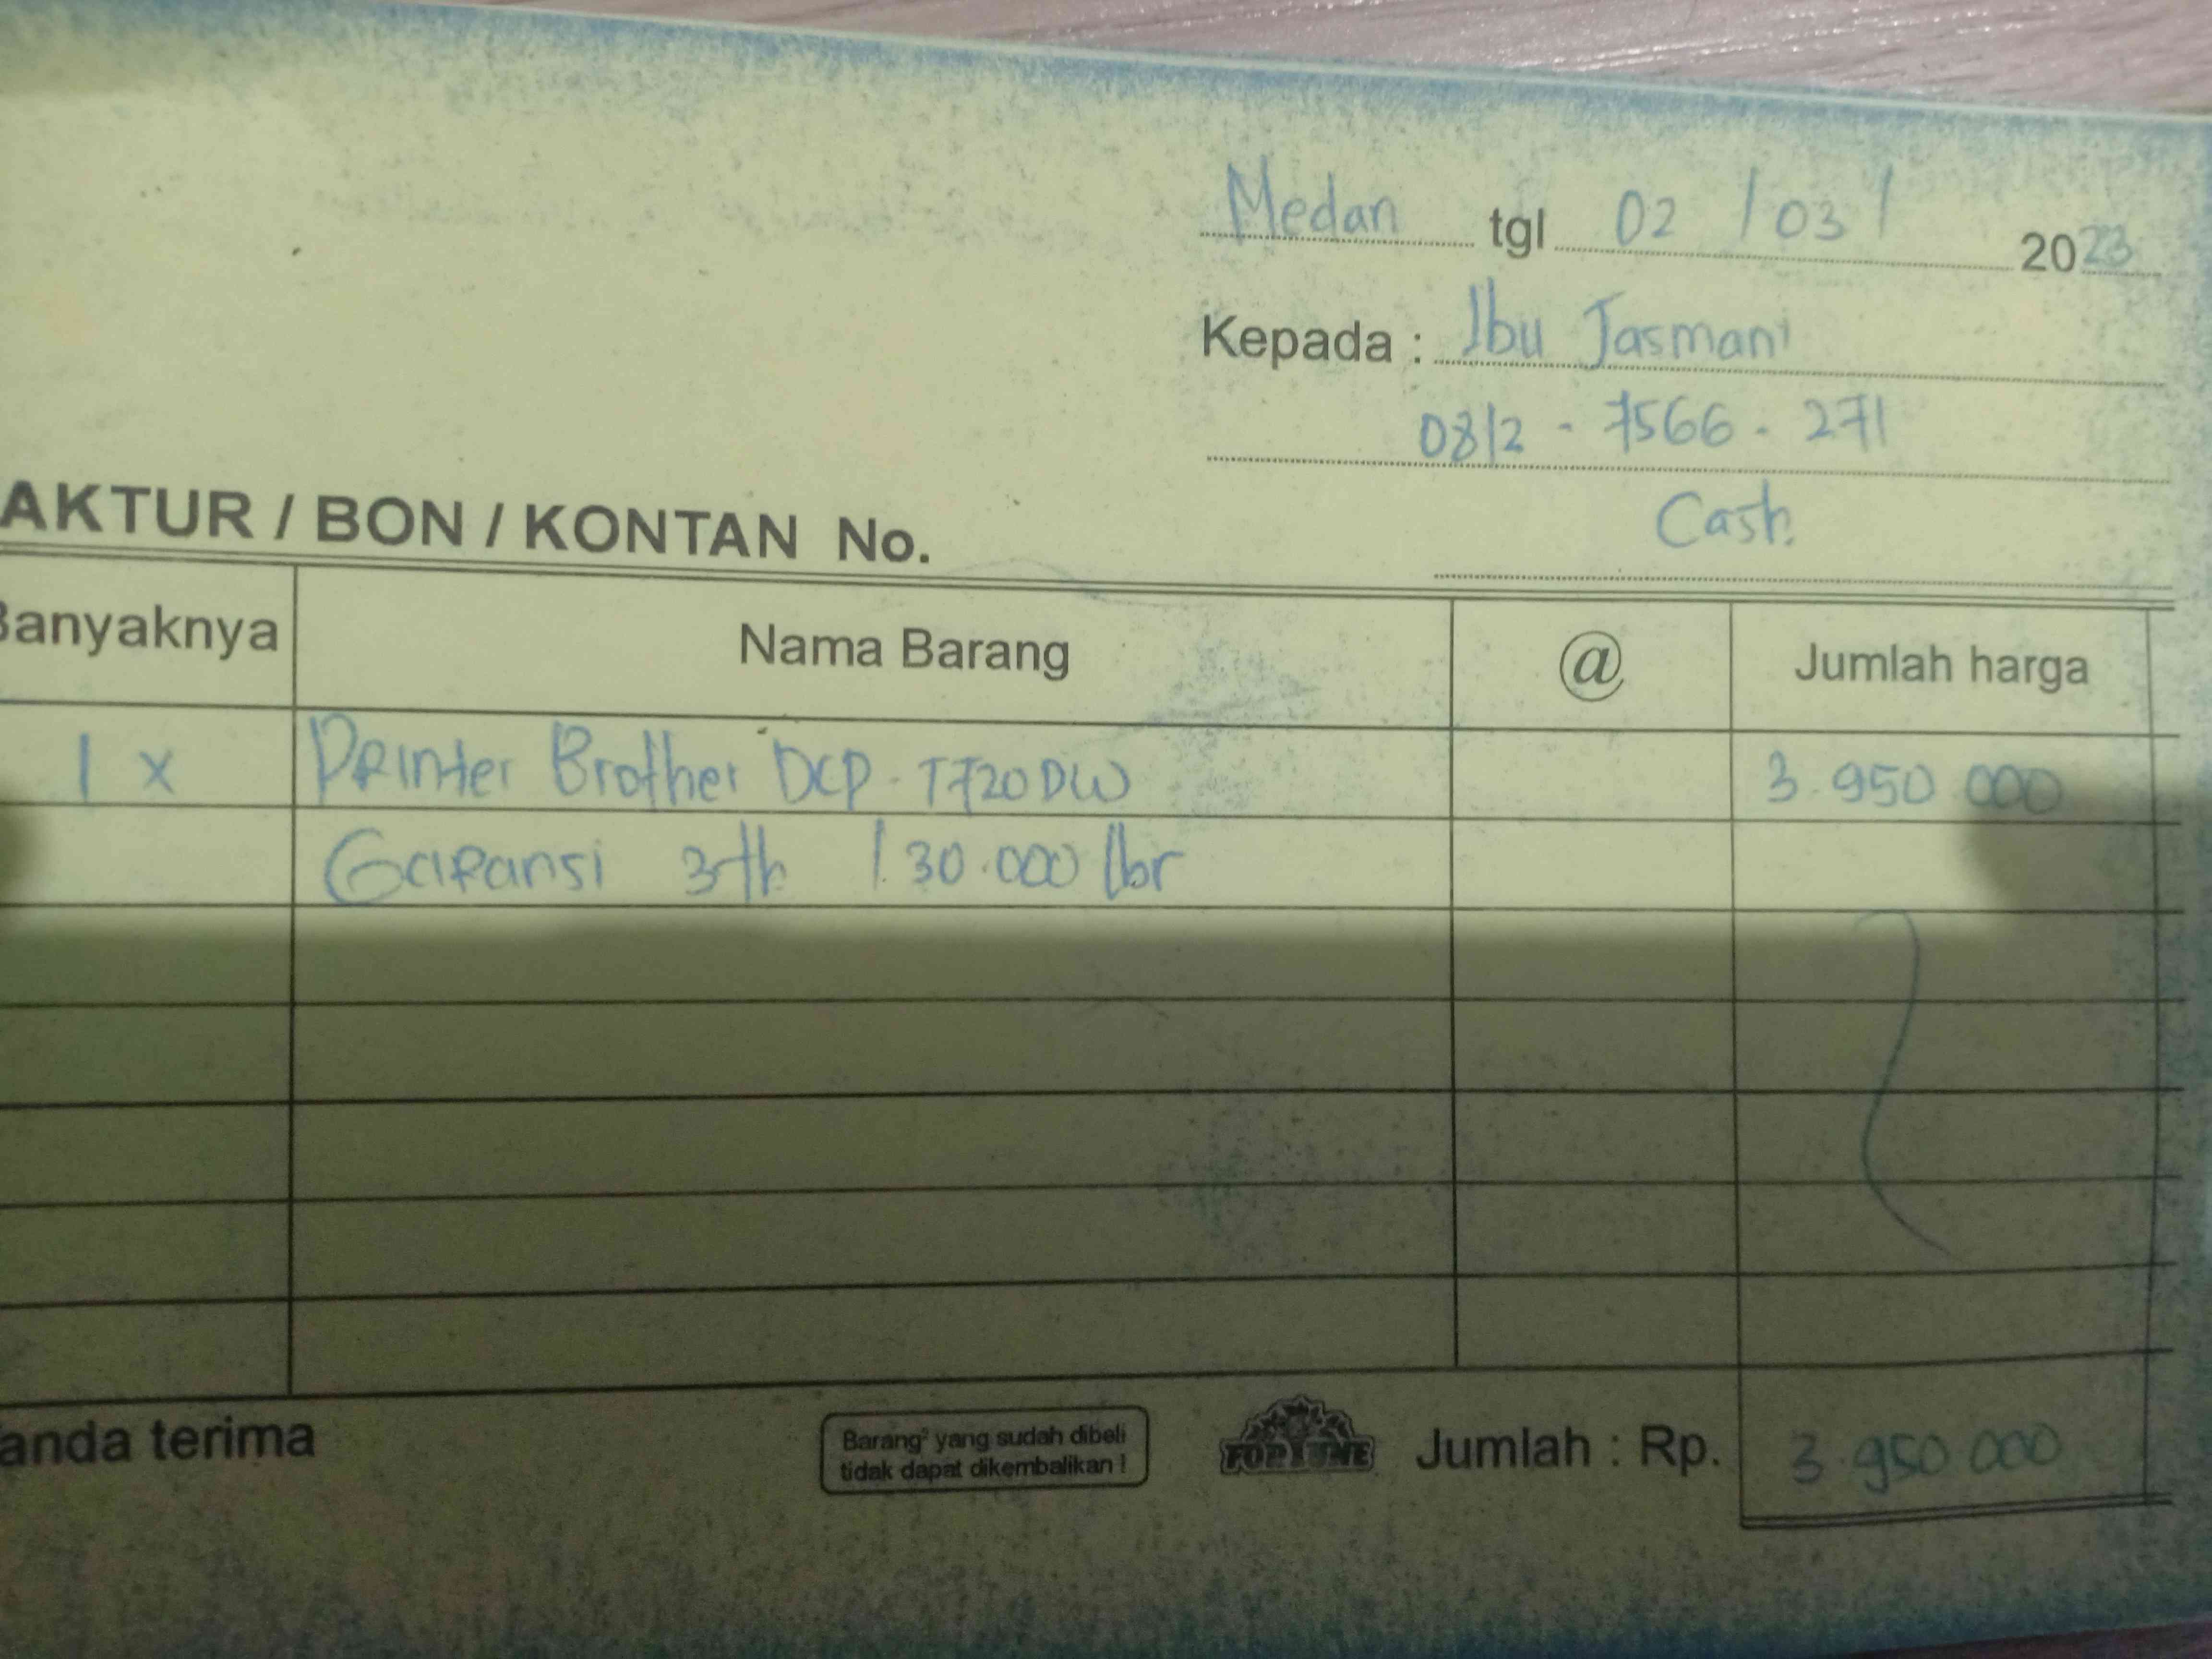 Medan tgl 02 / 03 / 2023
Kepada : Ibu Jasmani
0812 - 7566 - 271
Cash.
AKTUR / BON / KONTAN No.
Banyaknya Nama Barang @ Jumlah harga
1 x Printer Brother DCP - T720DW 3.950 000
Garansi 3th / 30.000 lbr
anda terima
Barang² yang sudah dibeli
tidak dapat dikembalikan !
FORTUNE
Jumlah : Rp. 3.950 000